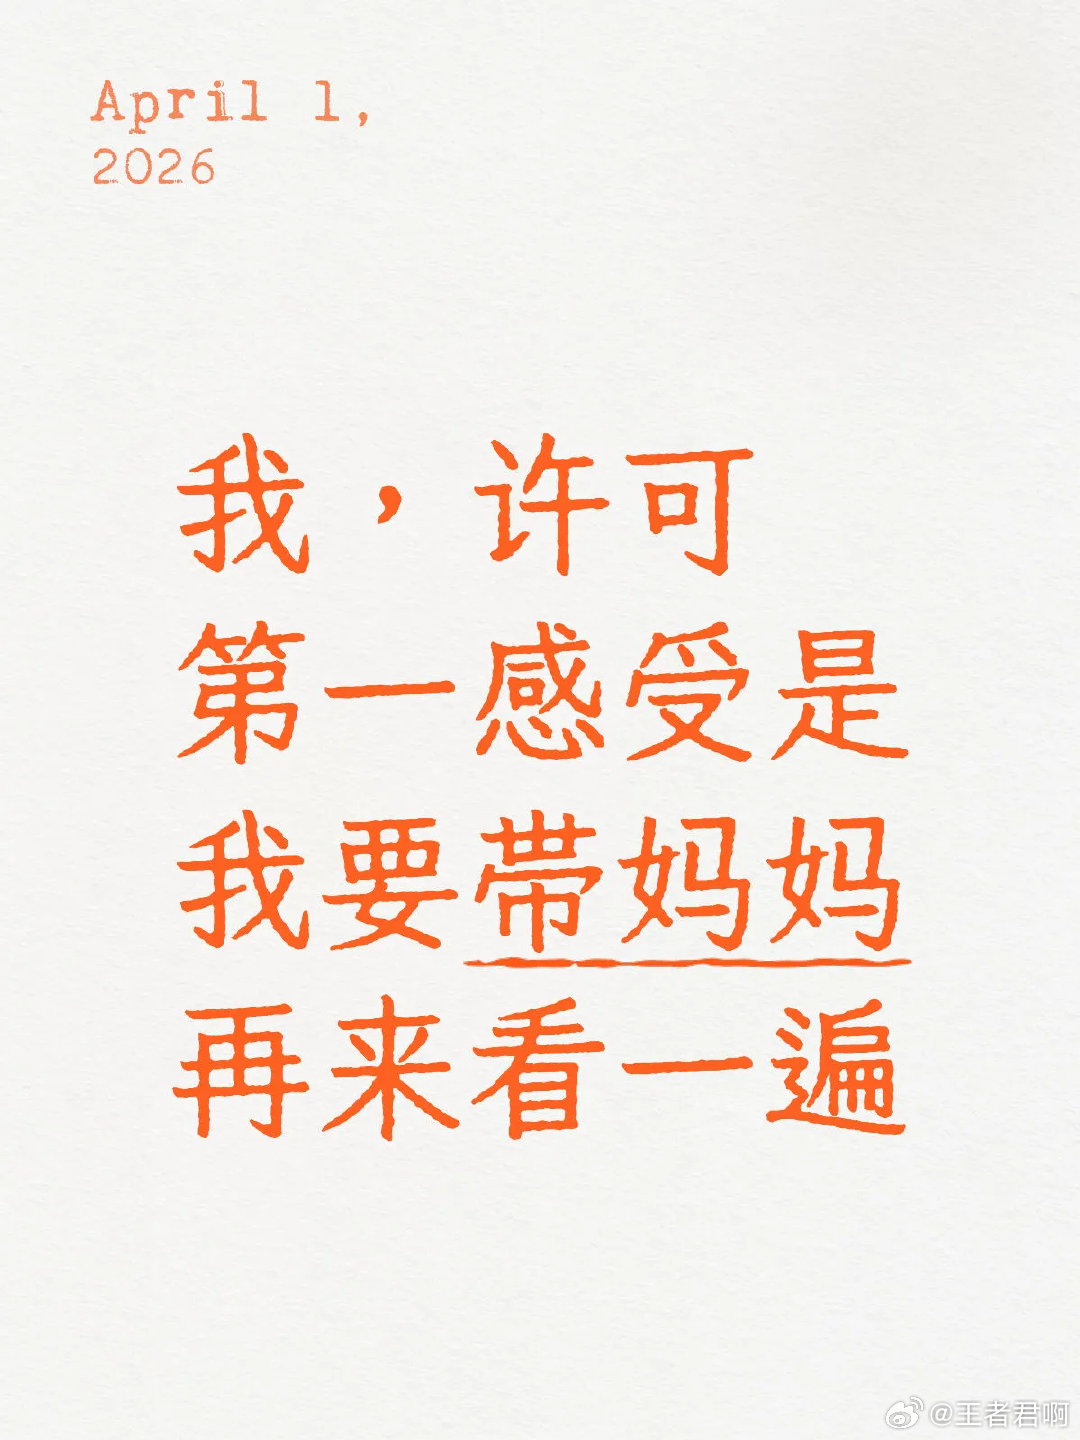 April 1,
2026
我，许可
第一感受是
我要带妈妈
再来看一遍
@王者君啊